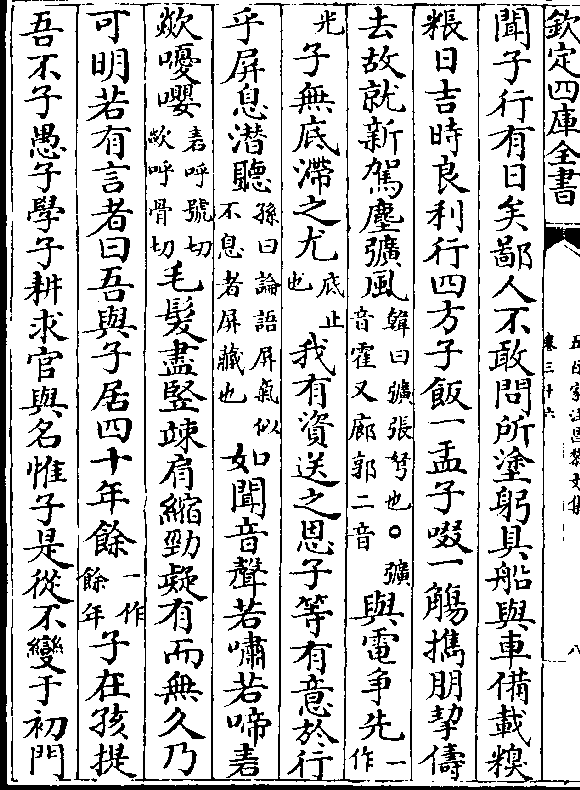 欽定四庫全書
五百家注昌黎文集
卷三十六
八
聞子行有日矣鄙人不敢問所塗躬具船與車備載糗
粻日吉時良利行四方子飯一盂子啜一觴攜朋挈儔
去故就新駕塵彍風韓曰彍張弩也○彍音霍又廊郭二音與電争先一作
光子無底滯之尤底止也我有資送之恩子等有意於行
乎屏息潛聽孫曰論語屏氣似不息者屏藏也如聞音聲若嘯若啼砉
歘嚘嚶砉呼號切歘呼骨切毛髮盡竪竦肩縮頸疑有而無久乃
可明若有言者曰吾與子居四十年餘一作餘年子在孩提
吾不子愚子學子耕求官與名惟子是從不變于初門